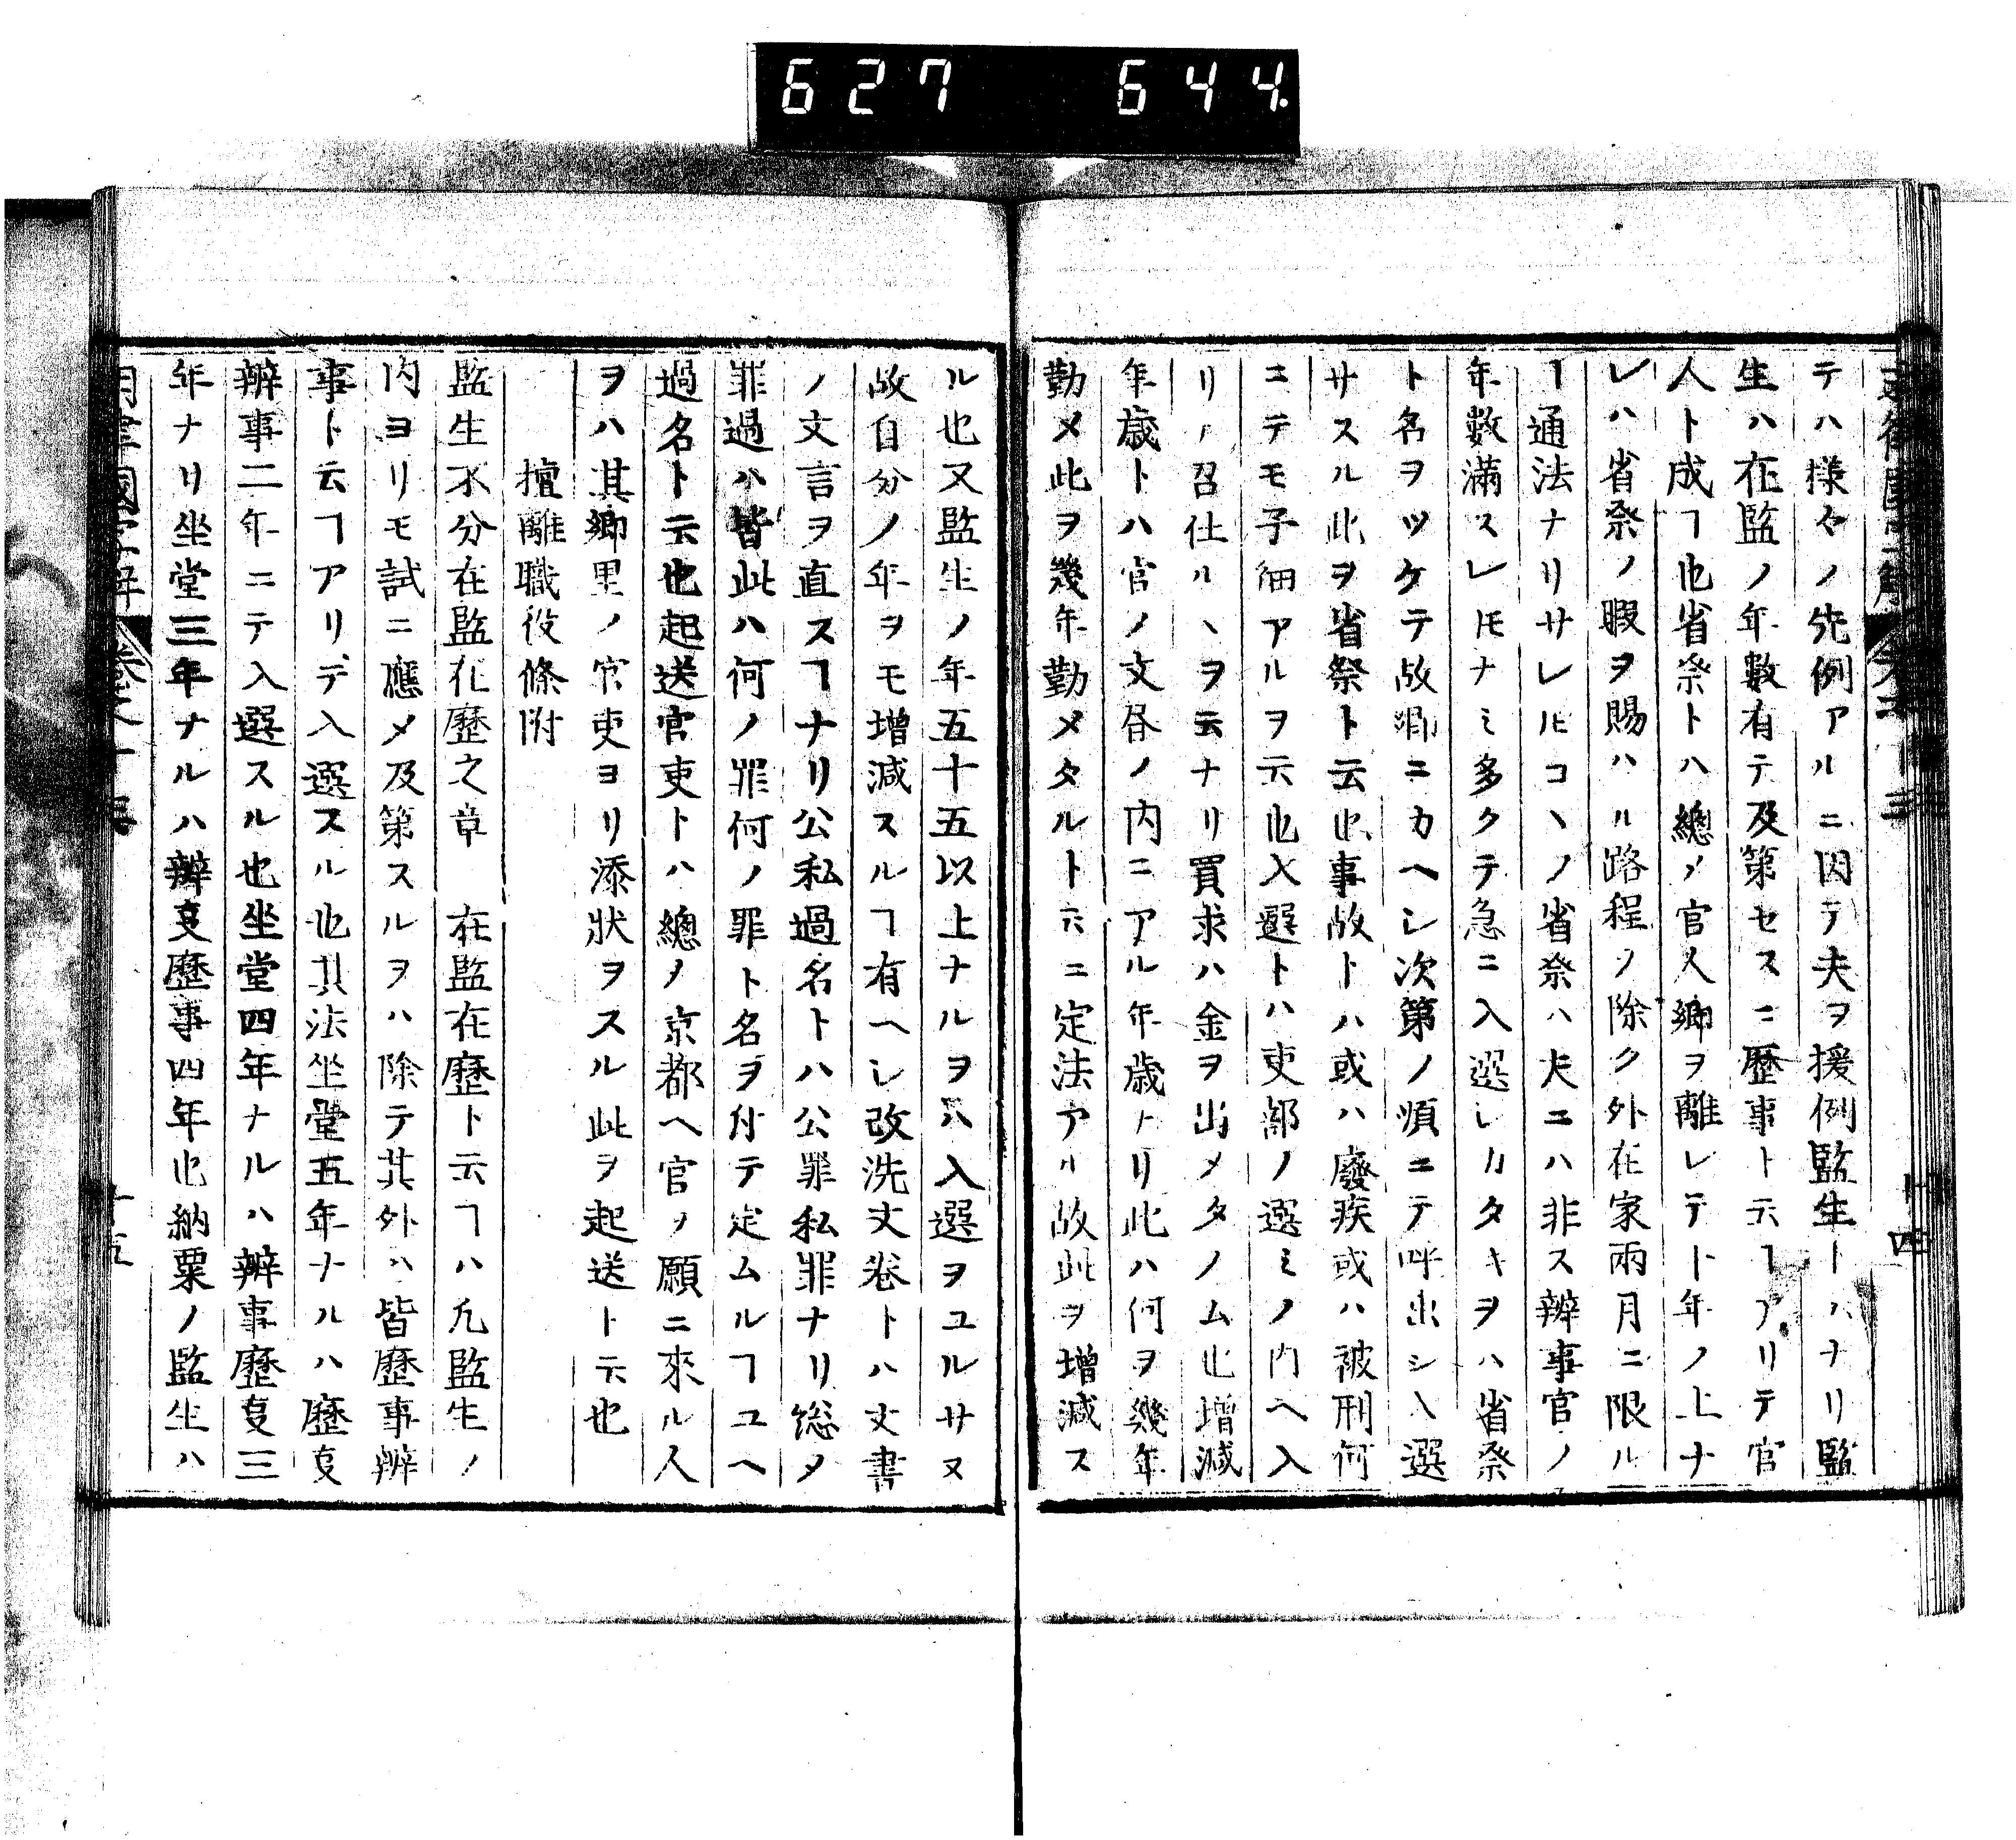 627 644.
テハ様々ノ先例アルニ因テ夫ヲ援例監生トハナリ監
生ハ在監ノ年數有テ及第セスニ歷事ト云ヿアリテ官
人ト成ヿ也省祭トハ總ノ官人鄉ヲ離レテ十年ノ上ナ
レハ省祭ノ暇ヲ賜ハル路程ノ除ク外在家兩月ニ限ル
ヿ通法ナリサレ𪜈コヽノ省祭ハ夫ニハ非ス辨事官ノ
年數滿スレ𪜈ナミ多クテ急ニ入選レカタキヲハ省祭
ト名ヲツケテ故鄉ニカヘシ次第ノ順ニテ呼出シ入選
サスル此ヲ省祭ト云也事故トハ或ハ廢疾或ハ被刑何
ニテモ子細アルヲ云也入選トハ吏部ノ選ミノ內ヘ入
リノ召仕ルヽヲ云ナリ買求ハ金ヲ出メタノム也增減
年歲トハ官ノ文書ノ內ニアル年歲ナリ此ハ何ヲ幾年
勤メ此ヲ幾年勤メタルト云ニ定法アル故此ヲ增減ス
ル也又監生ノ年五十五以上ナルヲハ入選ヲユルサヌ
故自分ノ年ヲモ增減スルヿ有ヘシ改洗文卷トハ文書
ノ文言ヲ直スヿナリ公私過名トハ公罪私罪ナリ総メ
罪過ハ皆此ハ何ノ罪何ノ罪ト名ヲ付テ定ムルヿユヘ
過名ト云也起送官吏トハ總ノ京都ヘ官ノ願ニ來ル人
ヲハ其鄉里ノ官吏ヨリ添狀ヲスル此ヲ起送ト云也
擅離職役條附
監生不分在監在歷之章 在監在歷ト云ヿハ凢監生ノ
內ヨリモ試ニ應メ及第スルヲハ除テ其外ハ皆歷事辨
事ト云ヿアリテ入選スル也其法坐堂五年ナルハ歷叓
辨事二年ニテ入選スル也坐堂四年ナルハ辨事歷叓三
年ナリ坐堂三年ナルハ辨叓歷事四年也納粟ノ監生ハ